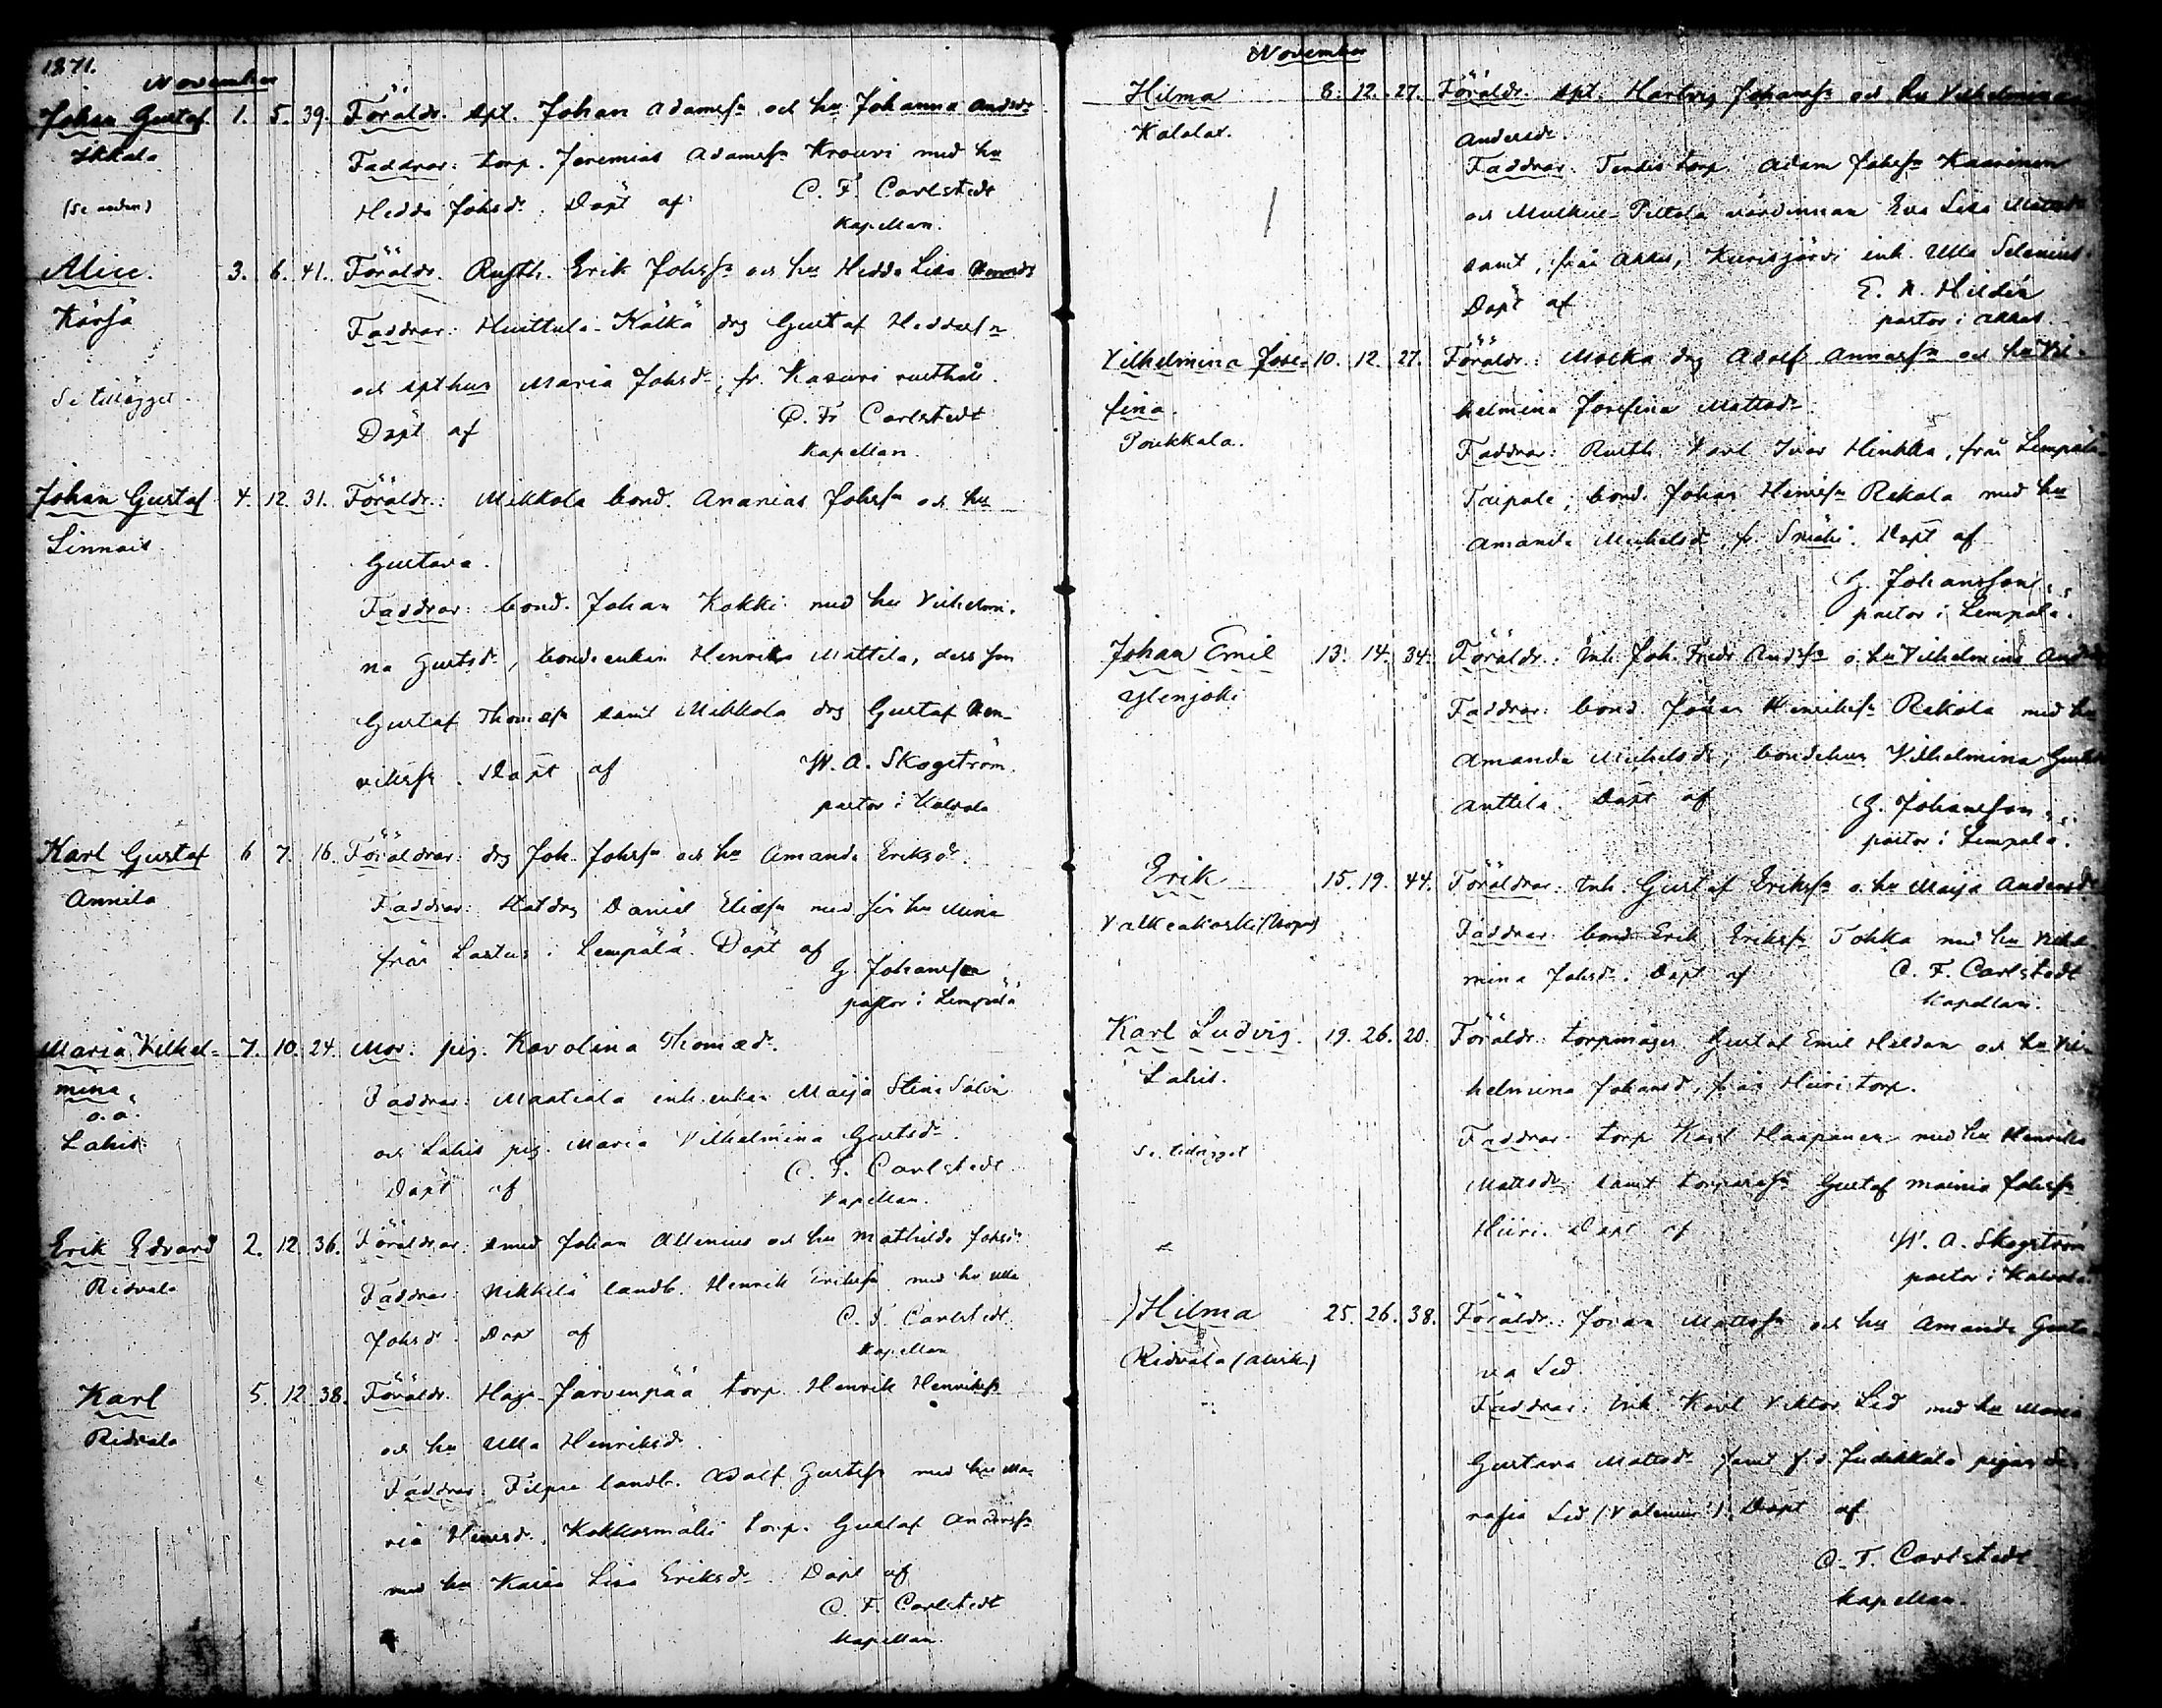 1871.
November
Johan Gustaf 1. 5. 39. Föräldr. spl. Johan Adamsſn och hu Johanna Andsdr
Ikkala Faddrar: torp. Jeremias Adamsſn Krouvi med hu
(Se anden) Hedda Johsdr. Döpt af C. F. Carlstedt
Kapellan.
Alice. 3. 6. 41. Föräldr. Rusth. Erik Johsſn och hu Hedda Lisa
Kärjä Faddrar: Huittula-Kälkä drg Gustaf
Se tillägget. och spthu Maria Johsdr, fr. Kasuri rusthåll.
Döpt af C. Fr Carlstedt
Kapellan.
Johan Gustaf 4. 12. 31. Föräldr.: Mikkola bond. Ananias Johsſn och hu
Linnais Gustava.
Faddrar: bond. Johan Kokki med hu Vilhelmi-
na Gustsdr, bondeenkan Henrika Mattila, dess son
Gustaf Thomæſn samt Mikkola drg Gustaf Hen-
riksſn. Döpt af W. A. Skogström
pastor i Kalvola
Karl Gustaf 6 7. 16. Föräldrar: drg Joh. Johsſn och hu Amanda Eriksdr.
Annila Faddrar: Statdrg Daniel Eliæſn med sin hu Mina
från Lastus i Lempälä. Döpt af G. Johansson
pastor i Lempälä
Maria Vilhel- 7. 10. 24. Mor: pig. Karolina Thomædr.
mina Faddrar: Maatiala inh.enkan Maija Stina Salin
o.ä. och Lahis pig. Maria Vilhelmina Gustsdr.
Lahis Döpt af C. F. Carlstedt
Kapellan.
Erik Edvard 2. 12. 36. Föräldrar: smed Johan Allenius och hu Mathilda Johsdr
Ridvala Faddrar: Nikkilä landb. Henrik Eriksſn med hu Ulla
Johsdr. Döpt af C. F. Carlstedt
Kapellan
Karl 5. 12. 38. Föräldr. Haga-Järvenpää torp. Henrik Henriksſn
Ridvala och hu Ulla Henriksdr.
Faddrar: Filpu landb. Adolf Gustsſn med hu Ma-
ria Henrsdr. Kokkosmäki torp. Gustaf Andersſn
med hu Kaisa Lisa Eriksdr. Döpt af
C. F. Carlstedt
Kapellan.
November
Hilma 8. 12. 27. Föräldr. spt. Hartvig Johansſn och hu Vilhelmina
Kalalax. Andersdr.
Faddrar: torp. Adam Johsſn Kaarinen
och värdinnan Eva Lisa Matsdr
samt, från Akkas, Kurisjärvi inh. Ulla Selenius
Döpt af E. A. Hildén
pastor i Akkas.
Vilhelmina Jose- 10. 12. 27. Föräldr.: drg Adolf Annasſn och hu Vil-
fina. helmina Josefina Mattsdr
Toukkala. Faddrar: Rusth. Karl Ivar Hinkka, från Lempälä-
Taipale, bond. Johan Henrsſn Rekola med hu
Amanda Michelsdr, fr. Döpt af
G. Johansson
pastor i Lempälä.
Johan Emil 13. 14. 34. Föräldr.: Inh. Joh. Fredr Andsſn o. hu Vilhelmina
Ylenjoki Faddrar: bond. Johan Henriksſn Rekola med hu
Amanda Michelsdr, bondehu Vilhelmina
Anttila. Döpt af G. Johansson
pastor i Lempälä.
Erik 15. 19. 44. Föräldrar: Inh. Gustaf Eriksſn o. hu Maija Andersdr
Valkeakoski Faddrar: bond Erik Eriksſn Tokka med hu Vilhel-
mina Johsdr. Döpt af C. F. Carlstedt
Kapellan.
Karl Ludvig 19. 26. 20. Föräldr: torpmågen Gustaf Emil Heldan och hu Vil-
Lahis. helmina Johansdr, från Hiiri torp.
Se tillägget Faddrar: torp Karl Haapanen med hu Henrika
Matsdr samt torpareſn Gustaf Mainio Johsſn
Hiiri. Döpt af W. A. Skogström
pastor i Kalvola.
Hilma 25. 26. 38. Föräldr.: Johan Mattsſn och hu Amanda Gusta-
Ridvala va Lid.
Faddrar: Inh. Karl Viktor Lid med hu Maria
Gustava Mattsdr samt f.d. Judikkala pigan Se-
rafia Lid. Döpt af
C. F. Carlstedt
Kapellan.